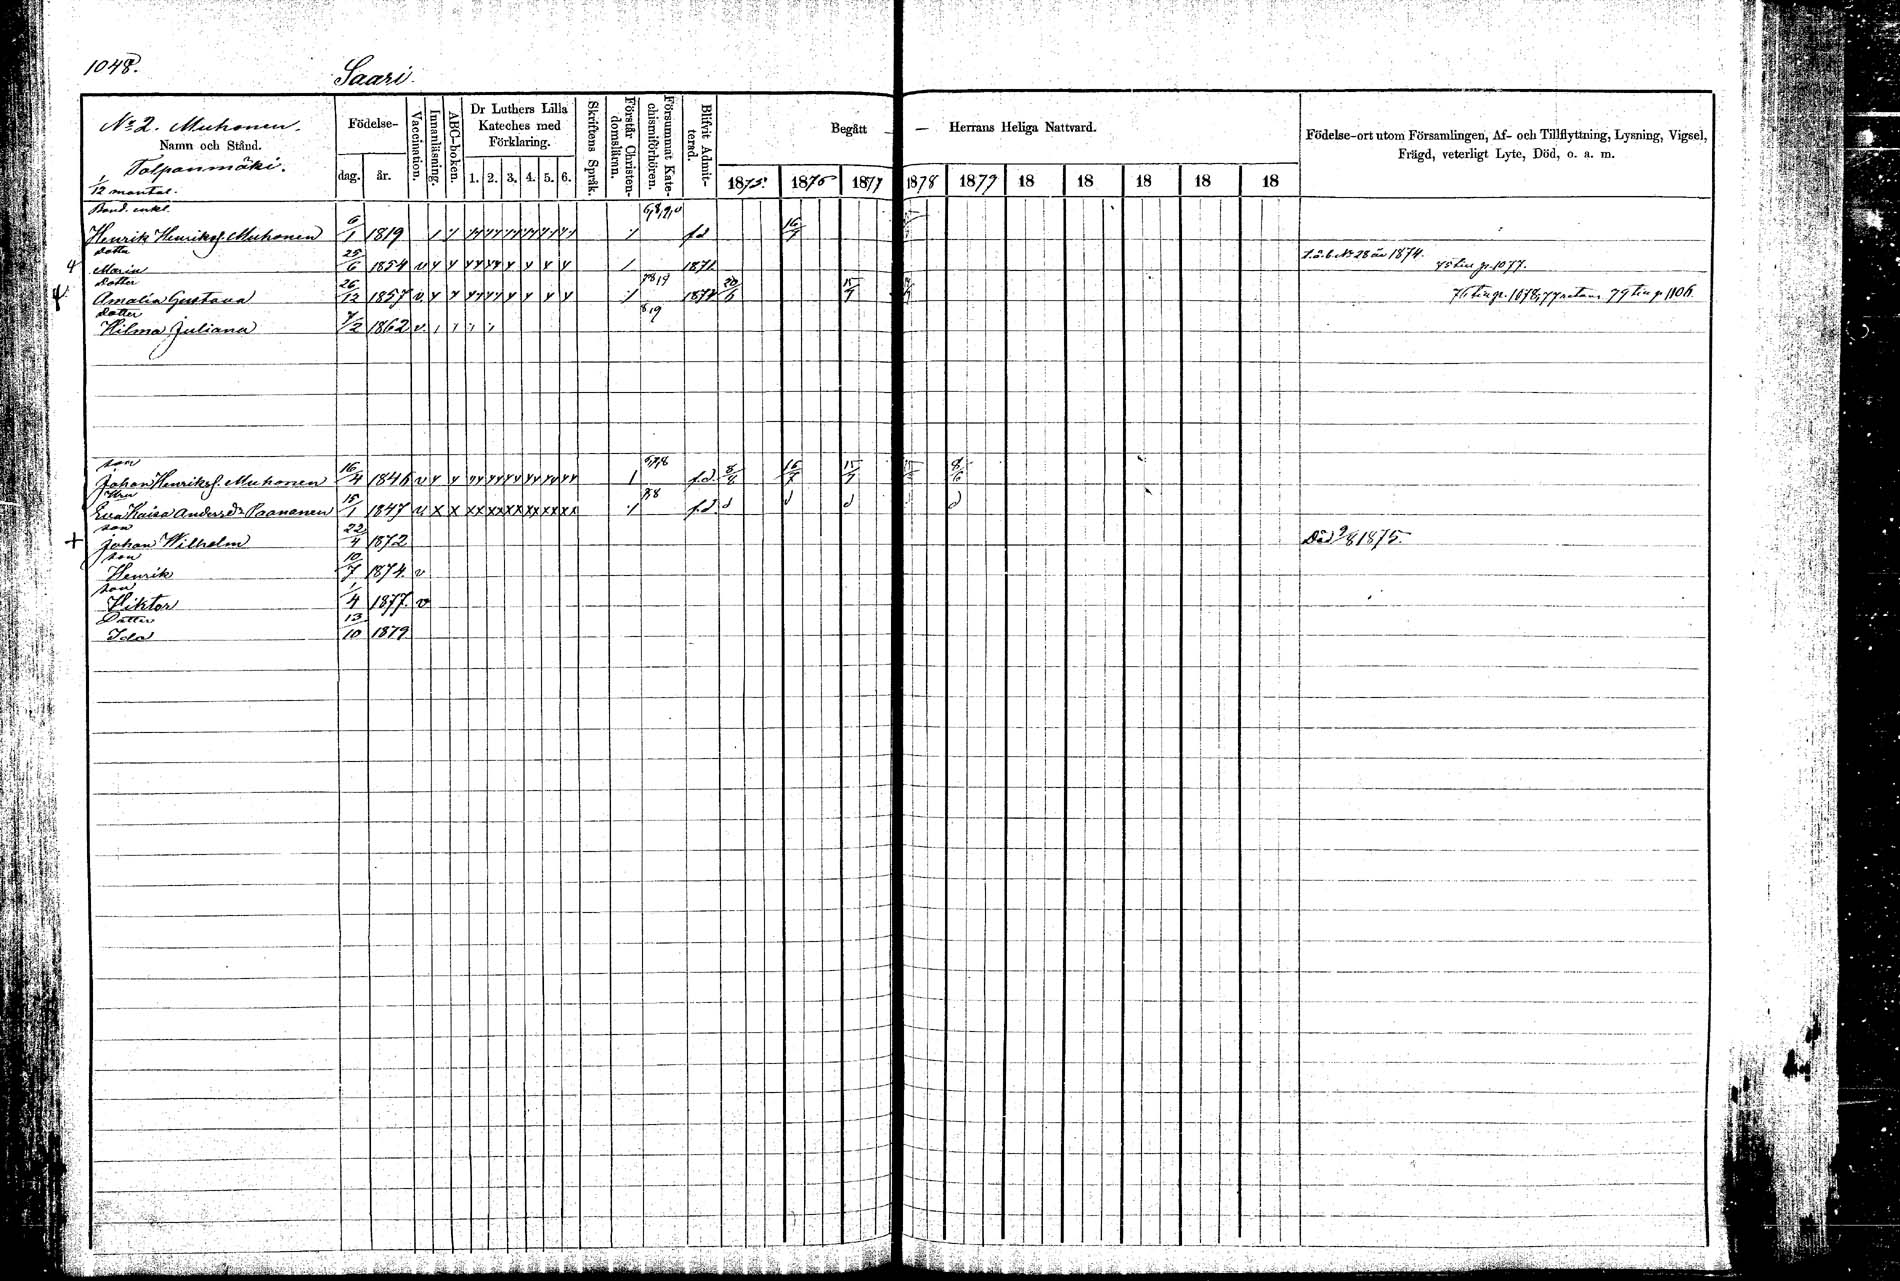 1048.
Saari.
No 2. Muhonen.
Namn och Stånd.
Tolpanmäki.
1/12 mantal.
Födelse-
dag. år.
Vaccination.
Innanläsning.
ABC-boken.
Dr Luthers Lilla Kateches med Förklaring.
1. 2. 3. 4. 5. 6.
Skriftens Språk.
Förstår Christendomsläran.
Försummat Katechismiförhören.
Blifvit Admitterad.
Begått — — Herrans Heliga Nattvard.
1875. 1876 1877 1878 1879 18 18 18 18 18
Födelse-ort utom Församlingen, Af- och Tillflyttning, Lysning, Vigsel,
Frägd, veterligt Lyte, Död, o. a. m.
Bond. enkl.
Henrik Henriksf. Muhonen 6/1 1819 f.d. 16/7
Dotter
Maria 25/6 1854 v 1871 L.å.b. No 28 år 1874. 75 tin p. 1077.
Dotter
Amalia Gustava 26/12 1857 v 7819 1874 20/6 15/7 76 tin p. 1078, 77 retour 79 tin p 1106
dotter
Hilma Juliana 7/2 1862 v. 819
son
Johan Henriksf. Muhonen 16/4 1846 v f.d. 8/8 16/7 15/7 8/6
Hru
Eva Kaisa Anders.dr Paananen 15/1 1847 v 78 f.d. d d d d
son
+ Johan Wilhelm 22/4 1872 Död 9/8 1875.
son
Henrik 10/7 1874. v
son
Viktor 1/4 1877. v
Dotter
Ida 13/10 1879